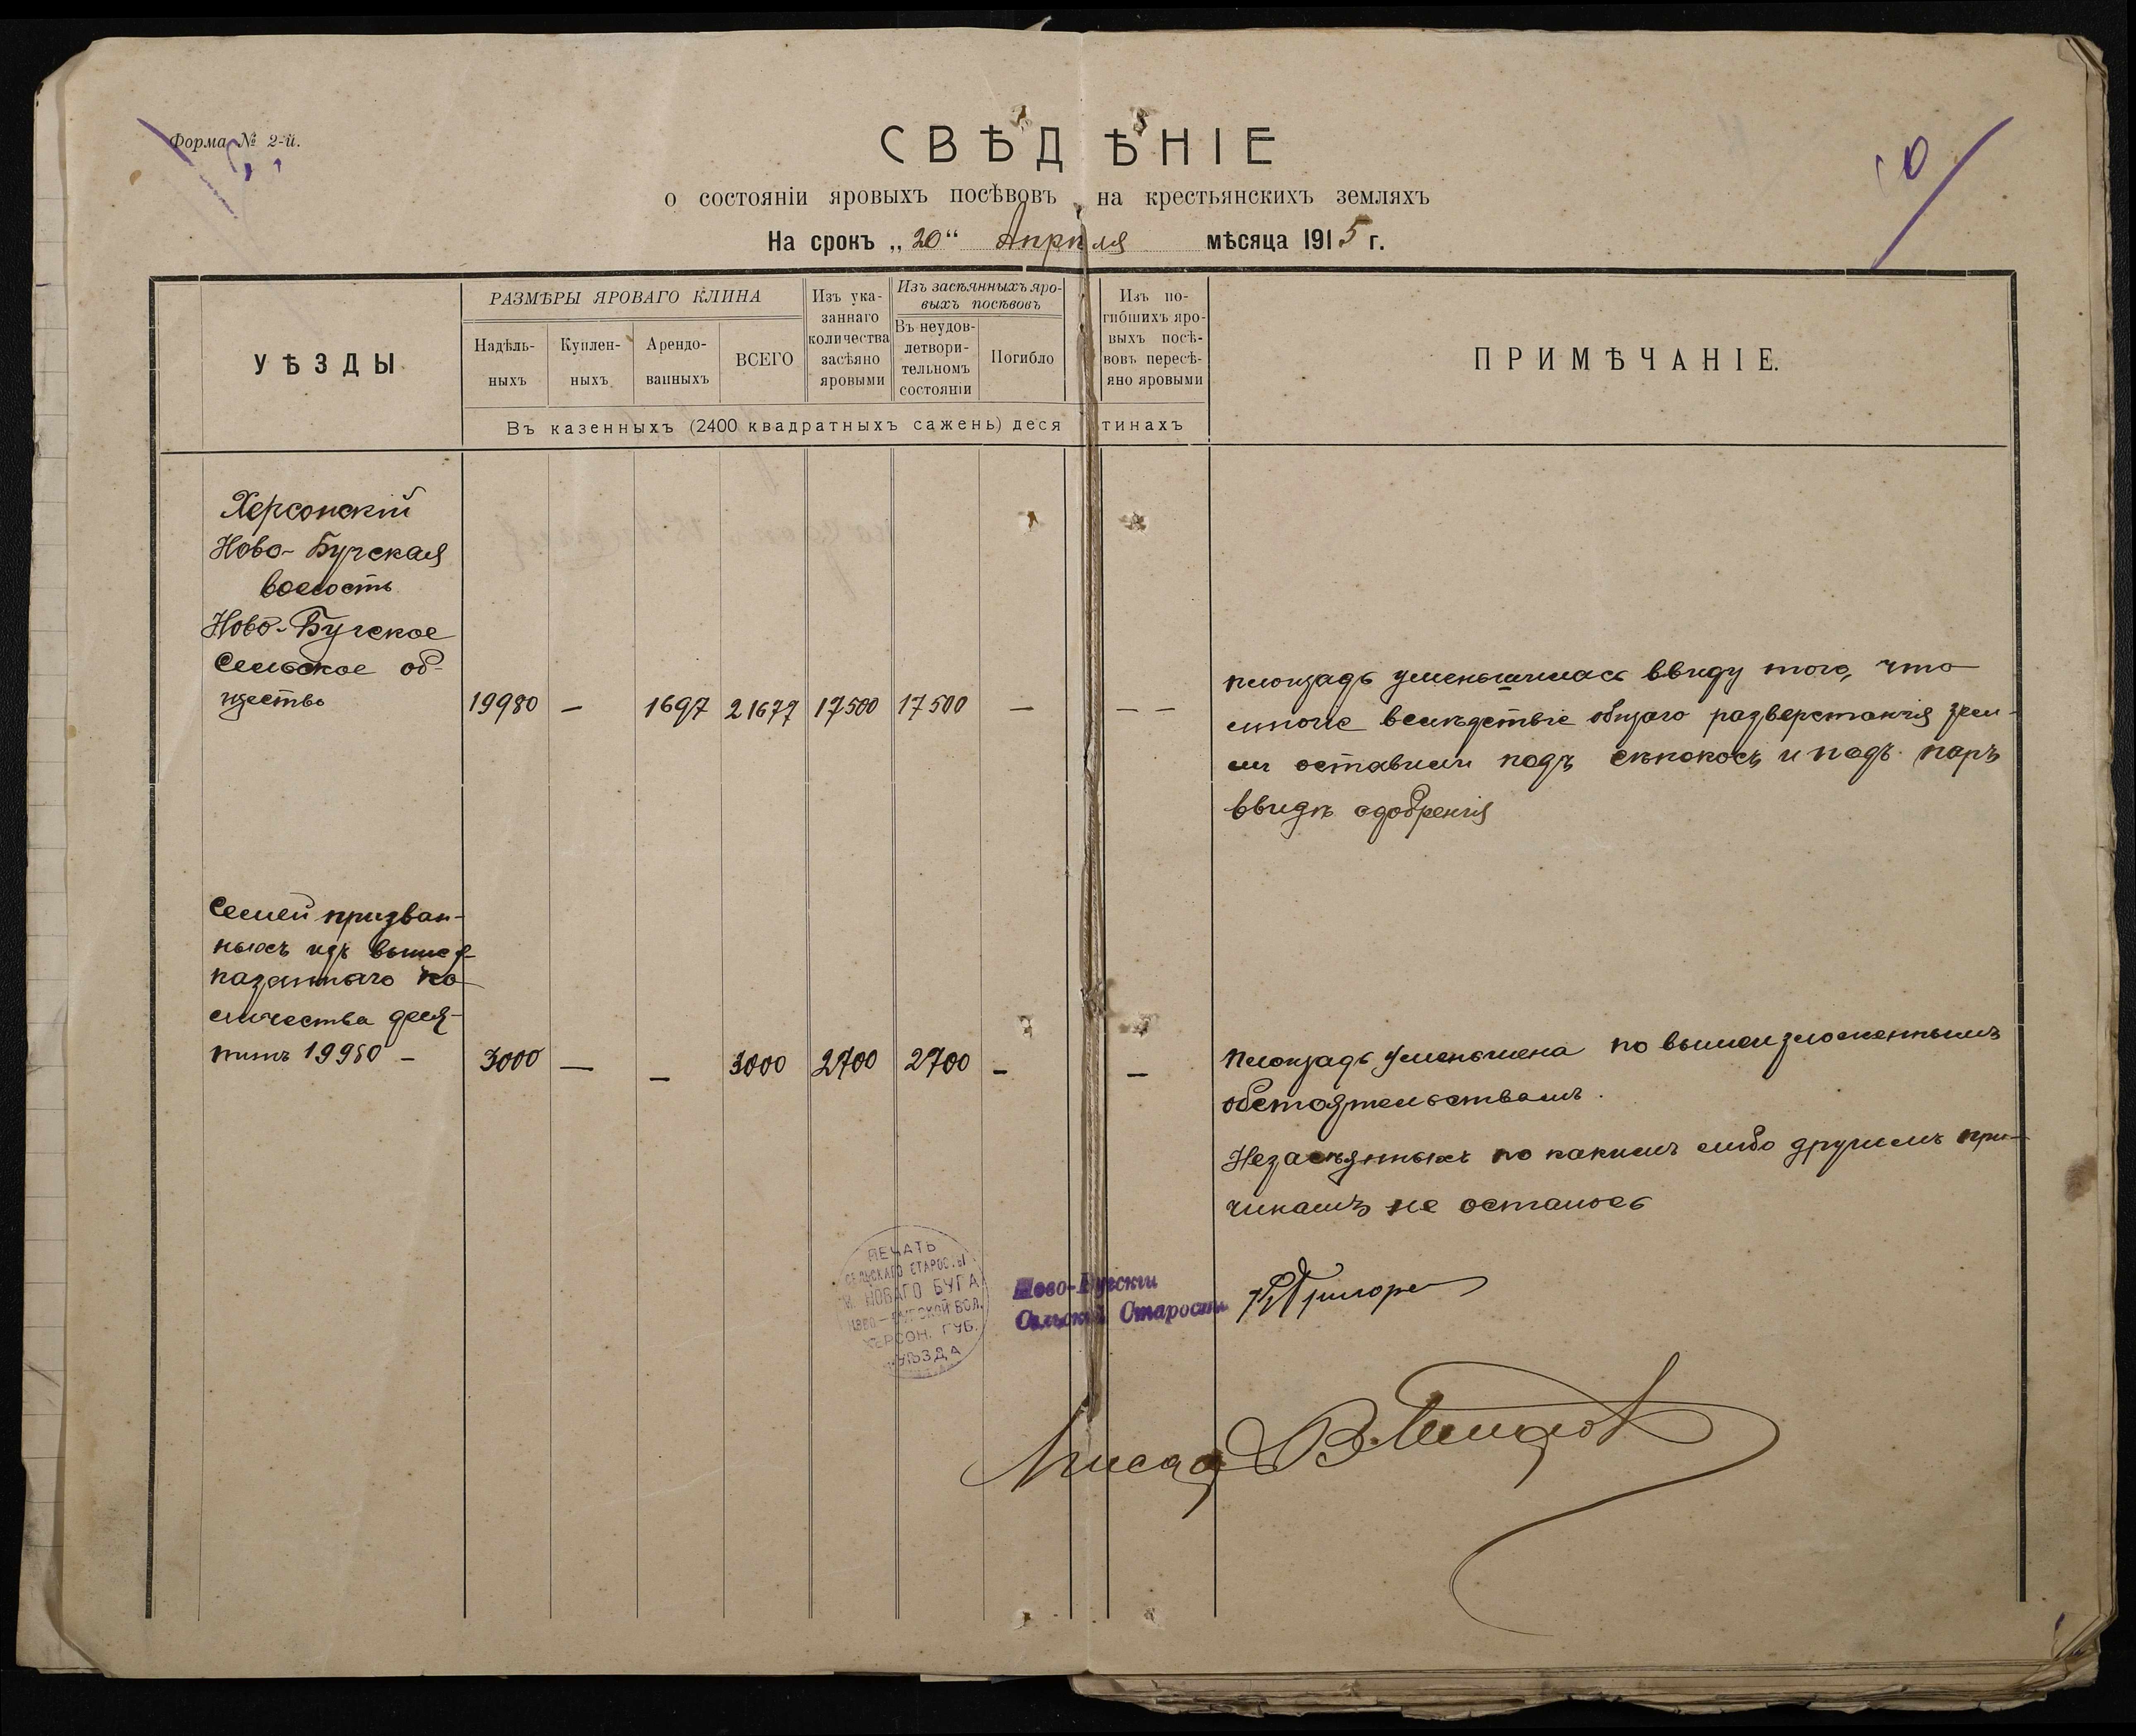 Форма № 2-й.
10
СВѢДѢНІЕ
о состояніи яровыхъ посѣвовъ на крестьянскихъ земляхъ
На срокъ „20“ Апрѣля мѣсяца 1915 г.
УѢЗДЫ
РАЗМѢРЫ ЯРОВАГО КЛИНА
Надѣль-
ныхъ
Куплен-
ныхъ
Арендо-
ванныхъ
ВСЕГО
Изъ ука-
заннаго
количества
засѣяно
яровыми
Изъ засѣянныхъ яро-
выхъ посѣвовъ
Въ неудов-
летвори-
тельномъ
состояніи
Погибло
Изъ по-
гибшихъ яро-
выхъ посѣ-
вовъ пересѣ-
яно яровыми
ПРИМѢЧАНІЕ.
Въ казенныхъ (2400 квадратныхъ сажень) десятинахъ
Херсонскій
Ново-Бугская
волость
Ново-Бугское
Сельское об-
щество
19980 — 1697 21677 17500 17500 — — —
площадь уменьшилась ввиду того, что
многіе вслѣдствіе общаго разверстанія зем-
ли оставили подъ сѣнокосъ и подъ паръ
ввидѣ одобренія
Семей призван-
ныхъ изъ вышеу-
казаннаго ко-
личества деся-
тинъ 19980 —
3000 — — 3000 2700 2700 — —
Площадь уменьшена по вышеизложеннымъ
обстоятельствамъ.
Незасѣянныхъ по какимъ либо другимъ при-
чинамъ не осталось
ПЕЧАТЬ
СЕЛЬСКАГО СТАРОСТЫ
НОВАГО БУГА
НОВО-БУГСКОЙ ВОЛ.
ХЕРСОН. ГУБ.
УѢЗДА
Ново-Бугскій
Сельскій Староста
Писарь В.